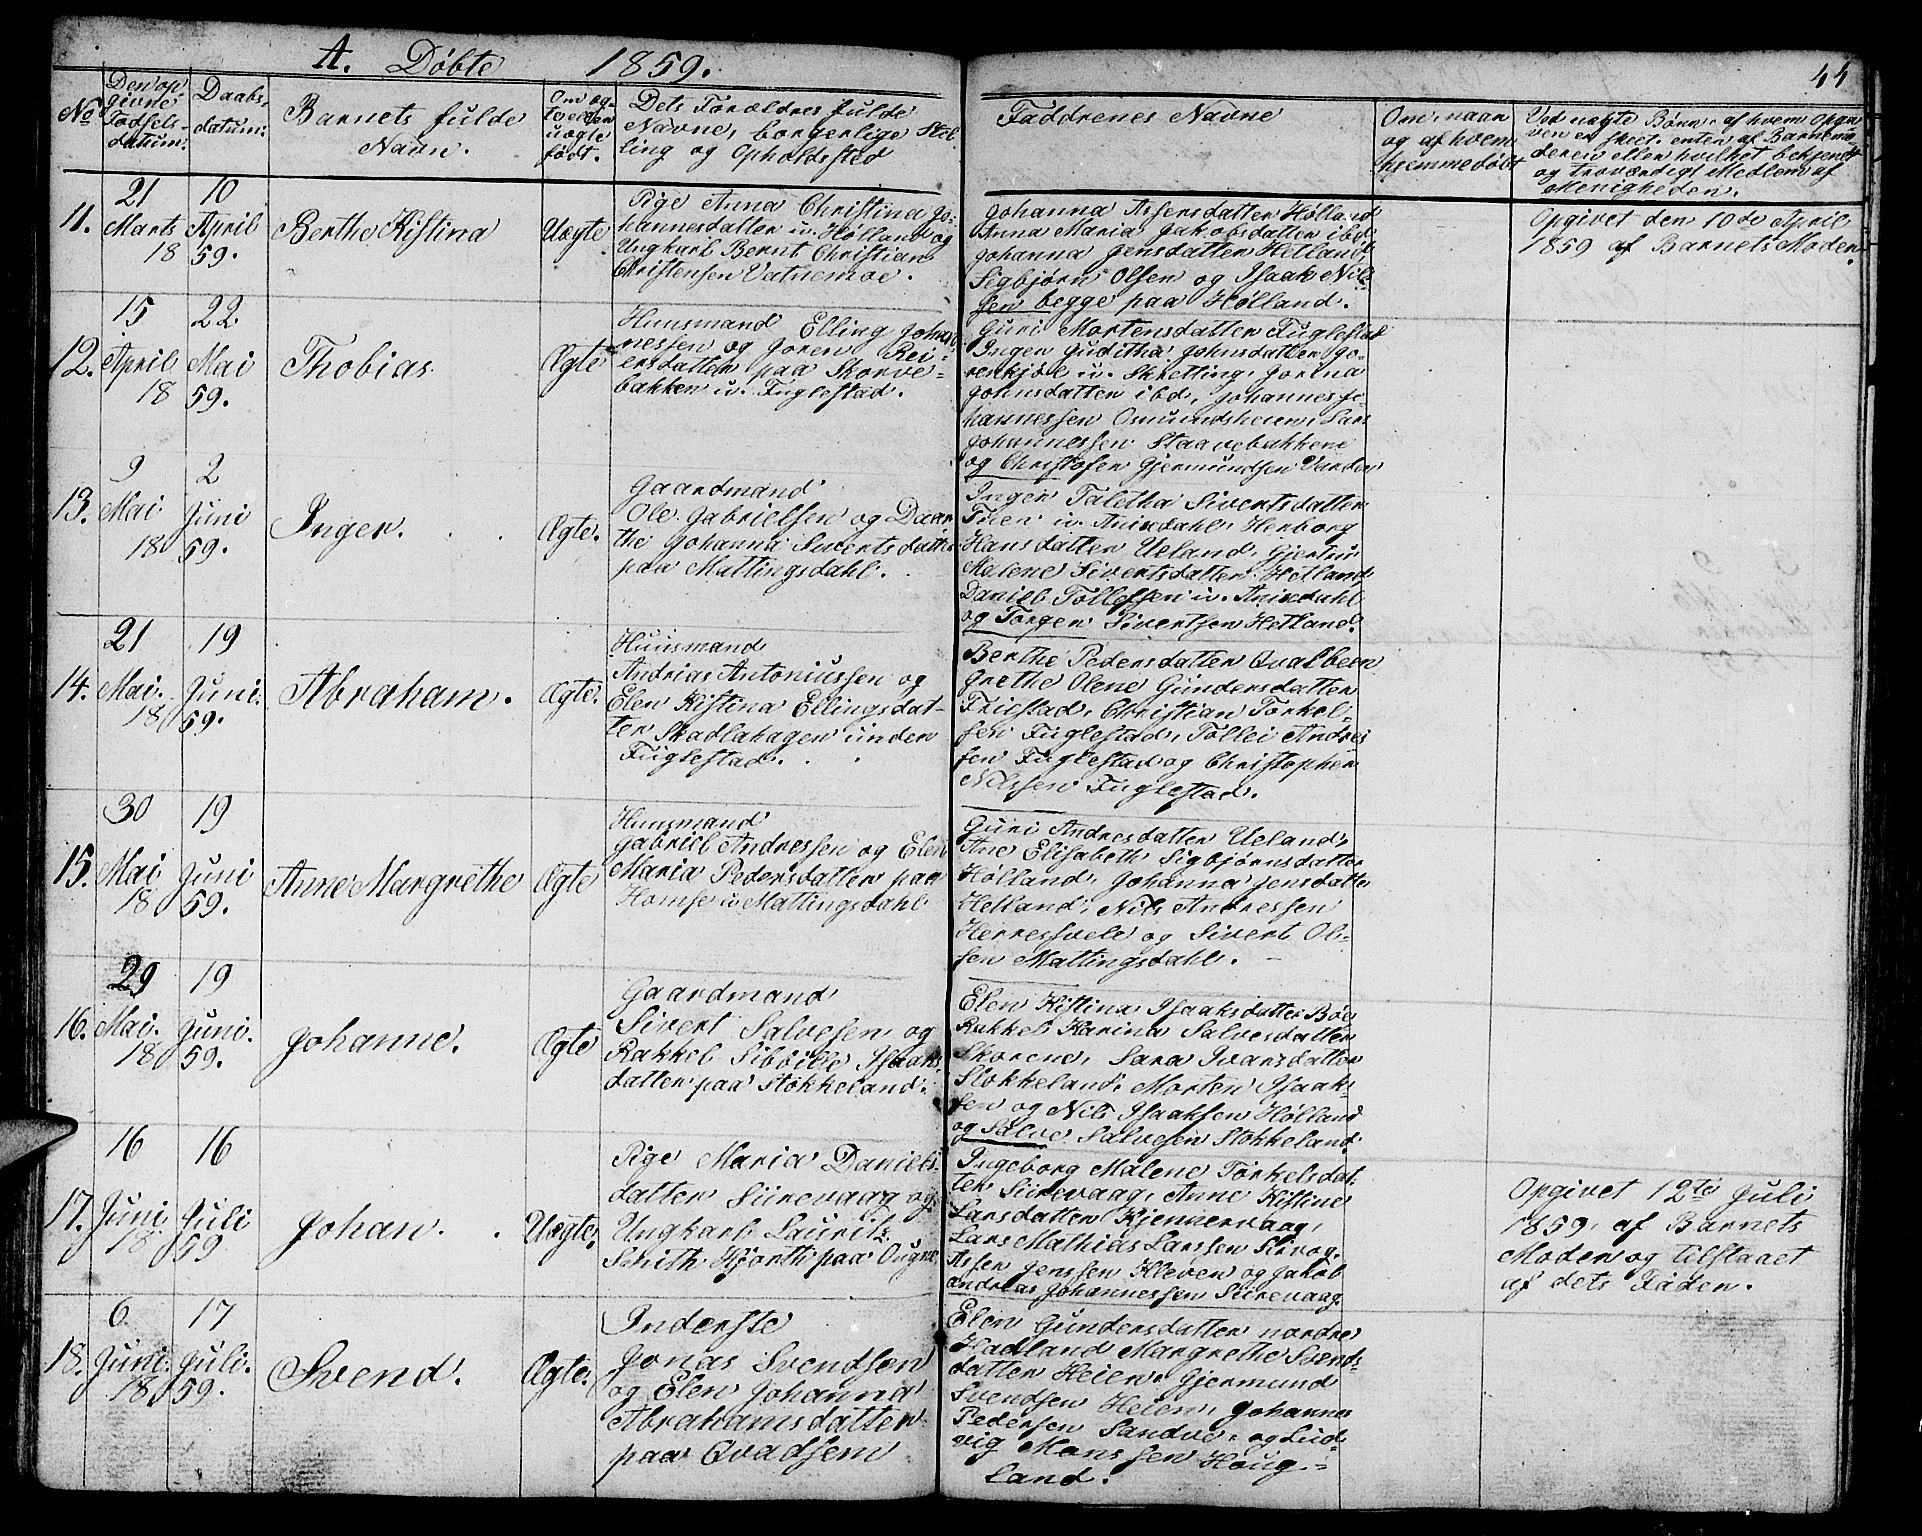 A. Døbte 1859.
44
No
Den op
givne
Fødsels-
datum.
Daabs,
datum.
Barnets fulde
Navn.
Om æg-
te eller
uægte
født.
Dets Forældres fulde
Navne, borgerlige Stil
ling og Opholdssted
Faddrenes Navne
Om, naar
og af hvem
hjemmedøbt
Ved uægte Børn, af hvem Opgi
ven er skeet, enten af Barnemo
deren eller hvilket bekjendt
og troværdigt Medlem af
Menigheden.
11.
21
Marts
18
10
April
59.
Berthe Kistina
Uægte
Pige Anna Christina Jo-
hannesdatten u. Hølland og
Ungkarl Bernt Christian
Christensen Vatnemoe.
Johanna Assersdatten Hølland
Anna Maria Jakobsdatten ibd
Johanna Jensdatten Hetland
Sigbjørn Olsen og Isaak Nil-
sen begge paa Hølland.
Opgivet den 10de April
1859 af Barnets Moder.
12.
15
April
18
22
Mai
59.
Thobias.
Ægte
Huusmand Elling Johan-
nessen og Joren Rei-
ersdatten paa Skorve-
bakken u. Fuglestad.
Guri Mortensdatten Fuglestad
Inger Juditha Johnsdatten Jo-
renkjøl u. Skretting, Jorina
Johnsdatten ibd, Johannes Jo-
hannessen Osmundsheien, Lars
Johannessen Staavebakkene
og Christofer Gjermundsen Varden
13.
9
Mai
18
2
Juni
59.
Inger.
Ægte.
Gaardmand
Ole Gabrielsen og Daar
the Johanna Sivertsdatten
paa Mattingsdahl.
Inger Taletha Sivertsdatten
Tuen u. Anisdahl, Herborg
Hansdatten Ueland, Gjertru
Malene Sivertsdatten Hetland
Daniel Tollefsen u. Anisdahl
og Torger Sivertsen Hetland.
14.
21
Mai.
18
19
Juni.
59.
Abraham.
Ægte.
Huusmand
Andrias Antoniussen og
Elen Kistina Ellingsdat-
ter Skadlahagen under
Fuglestad.
Berthe Pedersdatten Qvalbeen
Grethe Olene Gundersdatten
Friestad, Christian Torkel-
sen Fuglestad, Tollei Andres
sen Fuglestad og Christopher
Nilssen Fuglestad.
15.
30
Mai
18
19
Juni
59.
Anne Margrethe
Ægte
Huusmand
Gabriel Andressen og Elen
Maria Pedersdatten paa
Homse u Mattingsdahl
Guri Andresdatten Ueland,
Ane Elisabeth Sigbjørnsdatten
Hølland, Johanna Jensdatten
Hetland, Nils Andressen
Herresvele og Sivert Ol-
sen Mattingsdahl.
16.
29
Mai.
18
19
Juni.
59.
Johanne.
Ægte
Gaardmand
Sivert Salvesen og
Rakkel Sibølle Isaaks
datten paa Stokkeland.
Elen Kistina Isaaksdatten Bøe
Rakkel Karina Salvesdatten
Skorene, Sara Ivarsdatten
Stokkeland, Morten Isaak-
sen og Nils Isaaksen Hølland
og Salve Salvesen Stokkeland.
17.
16
Juni
18
16
Juli
59
Johan.
Uægte.
Pige Maria Daniels
datten Siirevaag og
Ungkarl Laurits
Smith Hjorth paa Ougne
Ingeborg Malene Torkelsdat
ter Siirevaag, Anne Kistine
Larsdatten Kjennervaag,
Lars Mathias Larssen Sirvog.
Asser Jenssen Kleven og Jakob
andreas Johannessen Siirevaag.
Opgivet 12te Juli
1859, af Barnets
Moder og tilstaaet
af dets Fader.
18.
6
Juni.
18
17
Juli.
59.
Svend.
Ægte.
Inderste
Jonas Svendsen
og Elen Johanna
Abrahamsdatten
paa Qvadsem
Elen Gundersdatten nordre
Hadland Margrethe Svends-
datten Heien, Gjermund
Svendsen Heien, Johannes
Pedersen Sandve, og Lud-
vig Monssen Houg-
land.